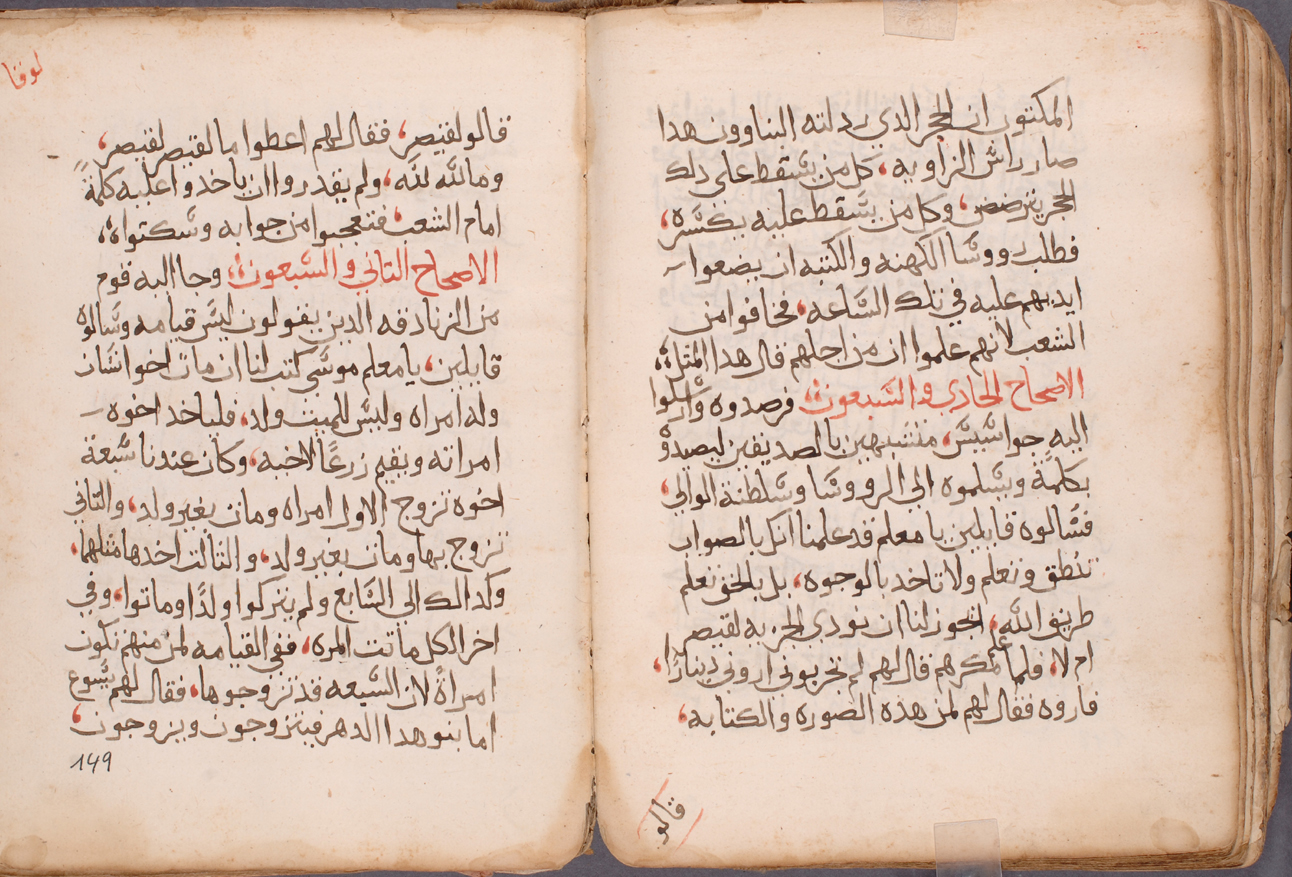 المكتوب ان الحجر الذي ردلته البناوون هدا
صار راس الزاويه، كل من يسقط على دلك
الحجر يترضض، وكل من يسقط عليه يكسره،
فطلب رووسا الكهنه والكتبه ان يضعوا
ايديهم عليه في تلك الساعه، فخافوا من
الشعب لانهم علموا ان من اجلهم قال هدا المتل،
الاصحاح الحادي والسبعون، فرصدوه وارسلوا
اليه جواسيس، متشبهين بالصديقين ليصيدوه
بكلمة ويسلموه الى الرووسا وسلطنة الوالي،
فسالوه قايلين يا معلم قد علمنا انك بالصواب
تنطق وتعلم ولا تاخد بالوجوه، بل بالحق تعلم
طريق الله، ايجوز لنا ان نودي الجزيه لقيصر
ام لا، فلما علم مكرهم قال لهم لم تجربوني اروني دينارًا،
فاروه فقال لهم لمن هذه الصوره والكتابه،
قالو
لوقا
قالو لقيصر، فقال لهم اعطوا ما لقيصر لقيصر،
وما لله لله، ولم يقدروا ان ياخدوا عليه كلمةً
امام الشعب، فتعجبوا من جوابه وسكتوا،
الاصحاح التاني والسبعون، وجا اليه قوم
من الزنادقه الدين يقولون ليس قيامه وسالوه
قايلين، يا معلم موسى كتب لنا ان مات اخو انسان
وله امراه وليس للميت ولد، فلياخد اخوه
امراته ويقيم زرعًا لاخيه، وكان عندنا سبعة
اخوه تزوج الاول امراه ومات بغير ولد، والتاني
تزوج بها ومات بغير ولد، والتالت اخدها متلهما،
وكدالك الى السابع ولم يتركوا ولدًا وماتوا، وفي
اخر الكل ماتت المره، ففي القيامه لمن منهم تكون
امراةً لان السبعه قد تزوجوها، فقال لهم يسوع
اما بنو هدا الدهر فيتزوجون ويزوجون،
149